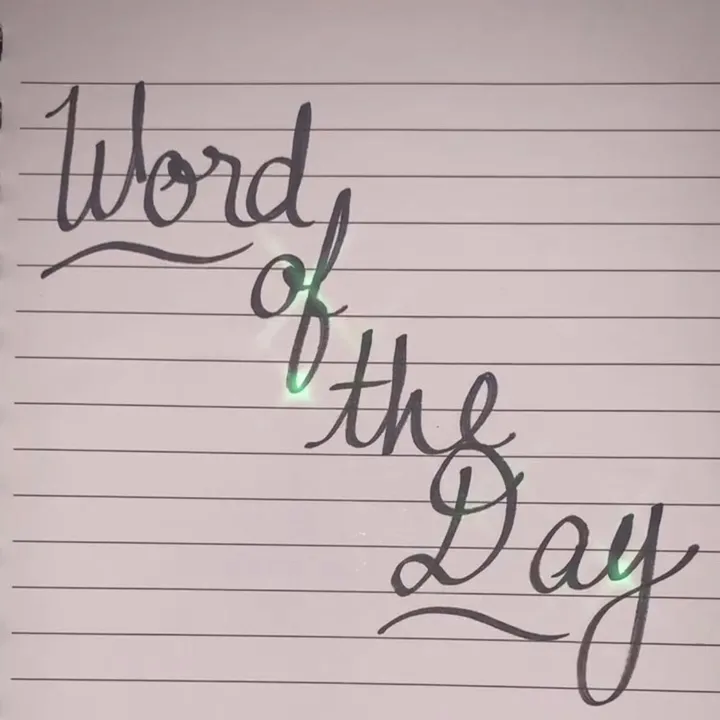 Word
of
the
Day